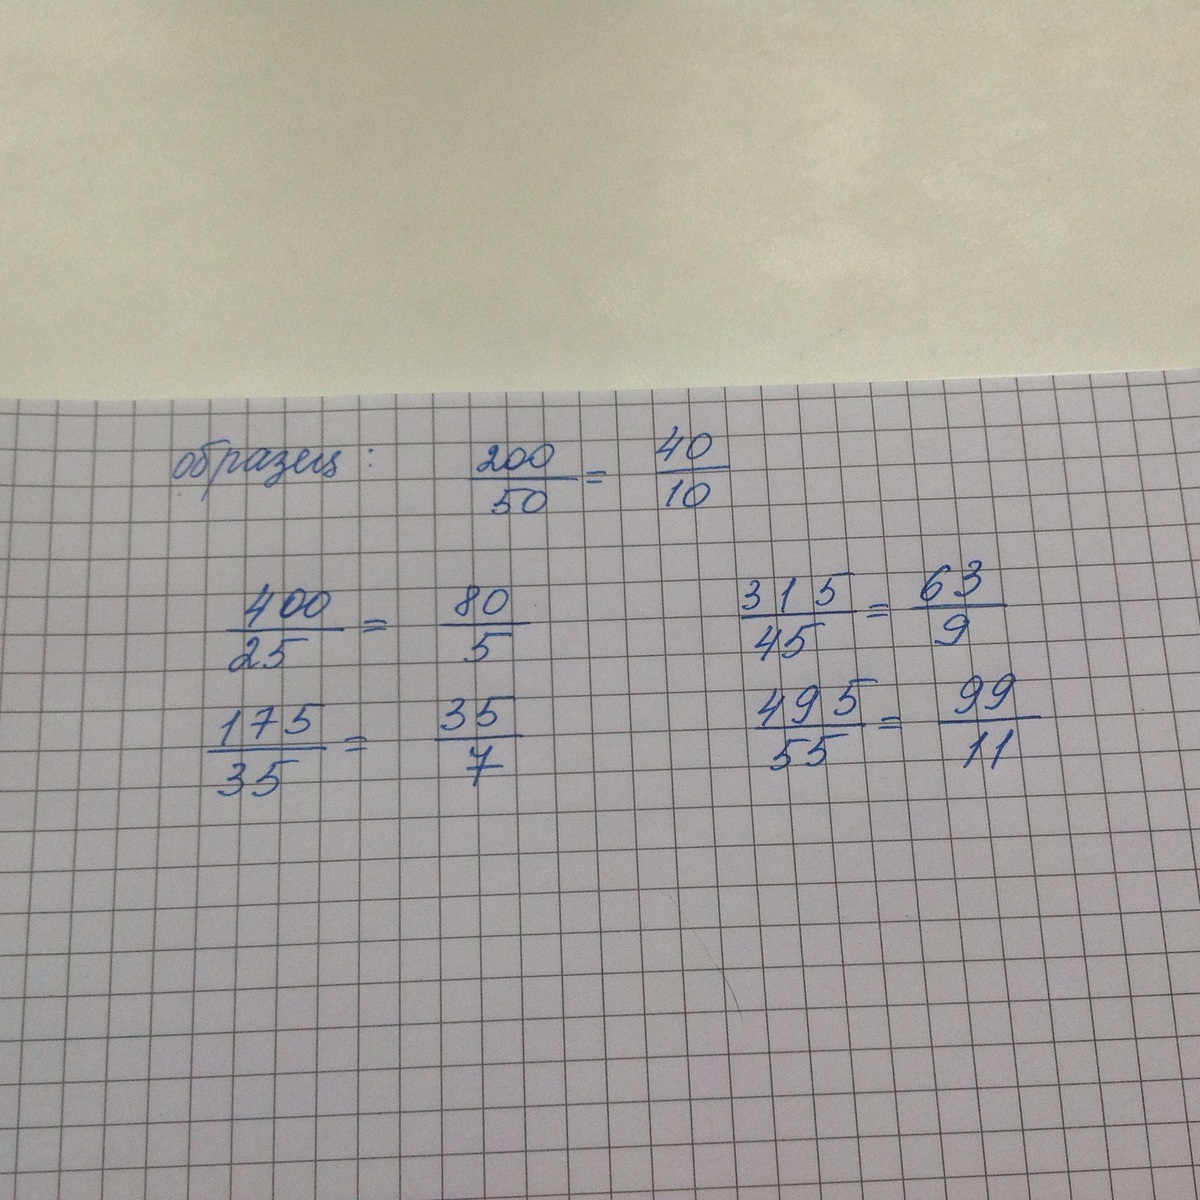 образец: 200/50 = 40/10
400/25 = 80/5 315/45 = 63/9
175/35 = 35/7 495/55 = 99/11